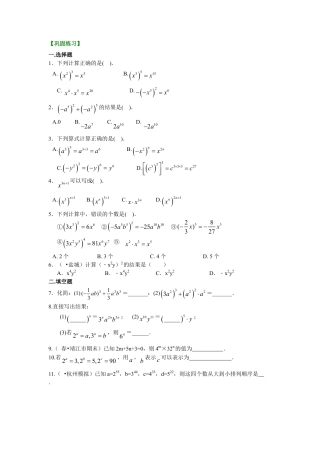 【巩固练习】
一.选择题
1.下列计算正确的是( ).
A. (x²)³ = x⁵ B. (x³)⁵ = x¹⁵
C. x⁴·x⁵ = x²⁰ D. −(−x³)² = x⁶
2. (−a⁵)² + (−a²)⁵ 的结果是( ).
A.0 B. −2a⁷ C. 2a¹⁰ D. −2a¹⁰
3.下列算式计算正确的是( ).
A. (a³)³ = a³⁺³ = a⁶ B. (−x²)ⁿ = x²ⁿ
C. (−y²)³ = (−y)⁶ = y⁶ D. [(c³)³]³ = c³⁺³⁺³ = c²⁷
4. x³ⁿ⁺¹ 可以写成( ).
A. (x³)ⁿ⁺¹ B. (xⁿ)³⁺¹ C. x·x³ⁿ D. (xⁿ)²ⁿ⁺¹
5.下列计算中,错误的个数是( ).
① (3x³)² = 6x⁶ ② (−5a⁵b⁵)² = −25a¹⁰b¹⁰ ③ (−2/3 x)³ = −8/27 x³
④ (3x²y³)⁴ = 81x⁶y⁷ ⑤ x²·x³ = x⁵
A. 2 个 B. 3 个 C. 4 个 D. 5 个
6.( •盐城)计算(﹣x²y)²的结果是( )
A.x⁴y² B.﹣x⁴y² C.x²y² D.﹣x²y²
二.填空题
7.化简:(1)
8.直接写出结果:
(3)若 2ⁿ = a, 3ⁿ = b ,则 6ⁿ =______.
9.( 春•靖江市期末)已知 2m+5n+3=0,则 4ᵐ×32ⁿ的值为 .
10.若 2ᵃ = 3, 2ᵇ = 5, 2ᶜ = 90 ,用 a , b 表示 c 可以表示为 .
11.( •杭州模拟)已知 a=2⁵⁵,b=3⁴⁴,c=4³³,d=5²²,则这四个数从大到小排列顺序是
.